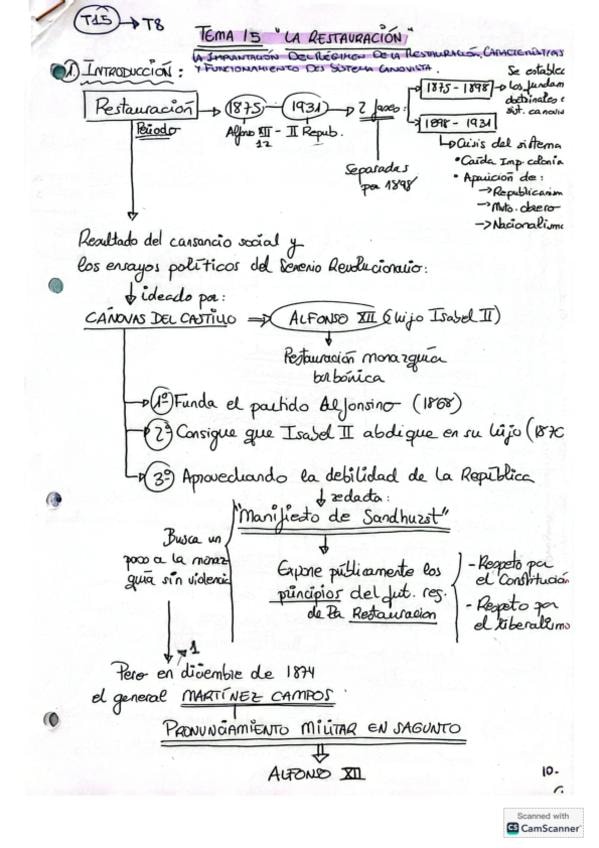 T15 → T8
TEMA 15 "LA RESTAURACIÓN"
LA IMPLANTACIÓN DEL RÉGIMEN DE LA RESTAURACIÓN, CARACTERÍSTICAS
Y FUNCIONAMIENTO DEL SISTEMA CANOVISTA.
1. INTRODUCCIÓN:
Restauración → 1875 - 1931 → 2 fases:
Periodo
Alfonso XII - II Repub.
12
Separadas
por 1898
1875 - 1898
Se establec
los fundam
doctrinales e
sist. canovis
1898 - 1931
Crisis del sistema
• Caída Imp. colonia
• Aparición de:
→ Republicanism
→ Mvto. obrero
→ Nacionalismo
Resultado del cansancio social y
los ensayos políticos del Sexenio Revolucionario:
↓ ideado por:
CÁNOVAS DEL CASTILLO ⇒ ALFONSO XII (hijo Isabel II)
Restauración monarquía
borbónica
1º Funda el partido Alfonsino (1868)
2º Consigue que Isabel II abdique en su hijo (1870
3º Aprovechando la debilidad de la República
↓ redacta:
"Manifiesto de Sandhurst"
Busca un
paso a la monar
quía sin violencia
Expone públicamente los
principios del fut. reg.
de la Restauracion
- Respeto por
el Constitución
- Respeto por
el liberalismo
1
Pero en diciembre de 1874
el general MARTÍNEZ CAMPOS
PRONUNCIAMIENTO MILITAR EN SAGUNTO
ALFONSO XII
10-
Scanned with
CS CamScanner